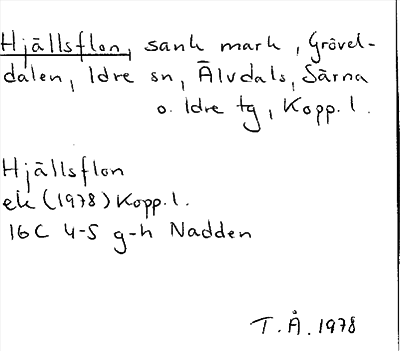 Hjällsflon, sank mark, Grövel-
dalen, Idre sn, Älvdals, Särna
o. Idre tg, Kopp. l.
Hjällsflon
ek (1978) Kopp. l.
16C 4-5 g-h Nadden
T. Å. 1978